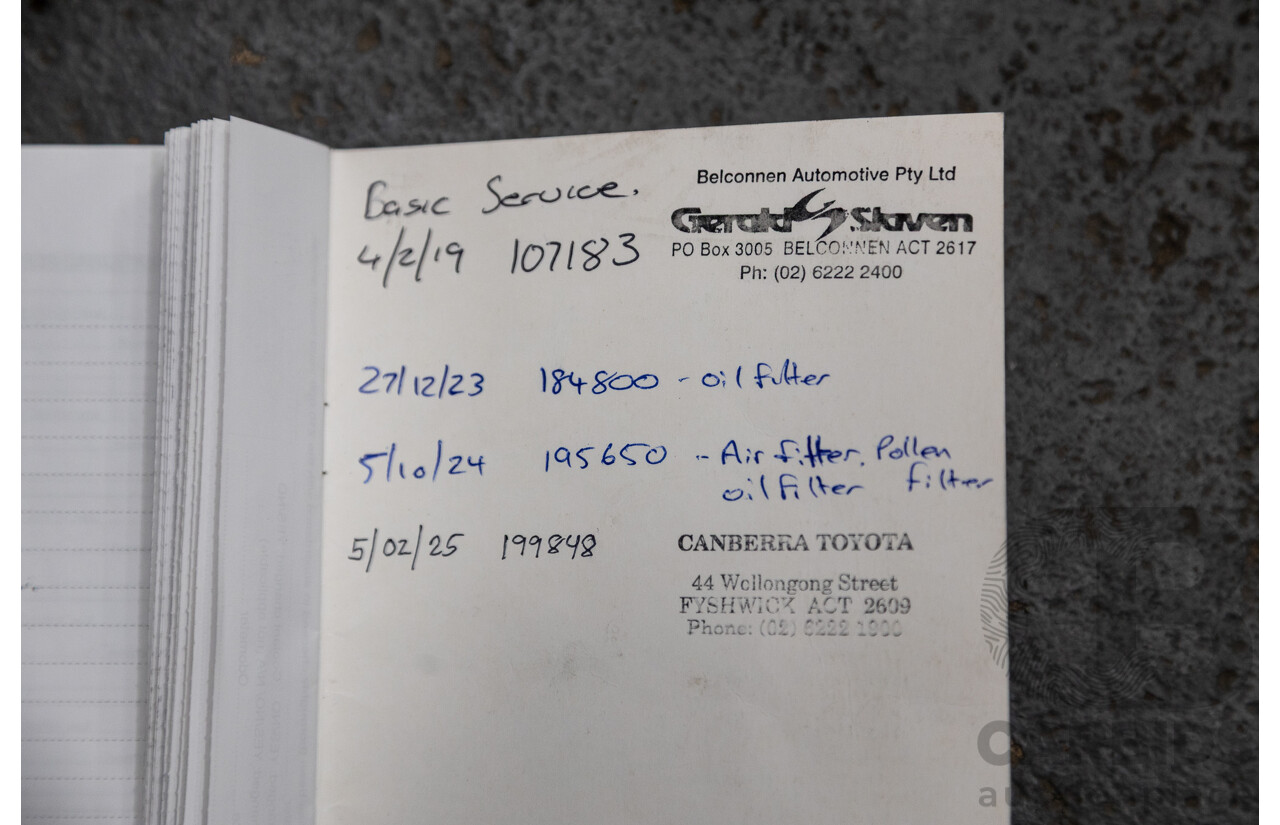 Basic Service.
4/2/19 107183
Belconnen Automotive Pty Ltd
Gerald Slaven
PO Box 3005 BELCONNEN ACT 2617
Ph: (02) 6222 2400
27/12/23 184800 - oil filter
5/10/24 195650 - Air filter. Pollen
oil filter filter
5/02/25 199848
CANBERRA TOYOTA
44 Wollongong Street
FYSHWICK ACT 2609
Phone: (02) 6222